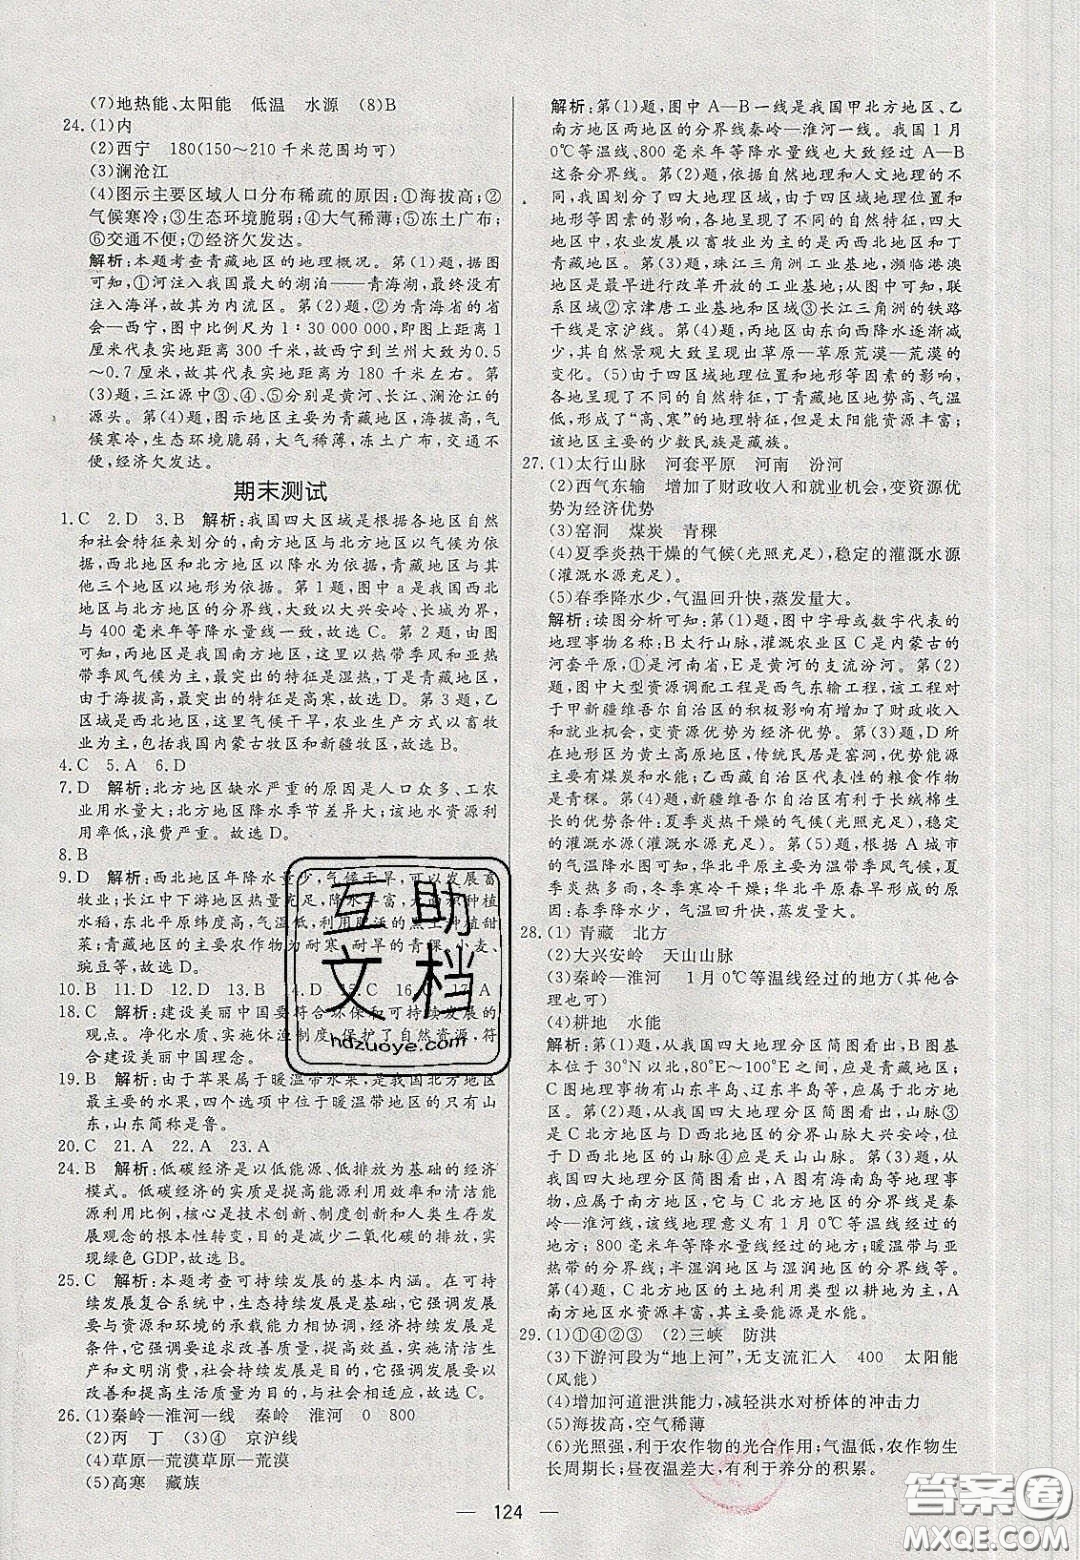 (7)地热能、太阳能　低温　水源　(8)B
24.(1)内
(2)西宁　180(150～210 千米范围均可)
(3)澜沧江
(4)图示主要区域人口分布稀疏的原因:①海拔高;②
气候寒冷;③生态环境脆弱;④大气稀薄;⑤冻土广布;
⑥交通不便;⑦经济欠发达。
解析:本题考查青藏地区的地理概况。第(1)题,据图
可知,①河注入我国最大的湖泊——青海湖,最终没有注
入海洋,故其为内流区。第(2)题,②为青海省的省
会—西宁,图中比例尺为 1∶30 000 000,即图上距离 1
厘米代表实地距离 300 千米,而西宁到兰州大致为0.5
～0.7 厘米,故其代表实地距离为 180 千米左右。第
(3)题,三江源中③、④、⑤分别是黄河、长江、澜沧江的
源头。第(4)题,图示地区主要为青藏地区,海拔高,气
候寒冷,生态环境脆弱,大气稀薄,冻土广布,交通不
便,经济欠发达。
期末测试
1.C　2.D　3.B　解析:我国四大区域是根据各地区自然
和社会特征来划分的,南方地区与北方地区以气候为依
据,西北地区和北方地区以降水为依据,青藏地区与其
他三个地区以地形为依据。第 1 题,图中 a 是我国西北
地区与北方地区的分界线,大致以大兴安岭、长城为界,
与 400 毫米年等降水量线一致,故选 C。第 2 题,由图
可知,丙地区是我国南方地区,这里以热带季风和亚热
带季风气候为主,最突出的特征是湿热,丁是青藏地区,
由于海拔高,最突出的特征是高寒,故选 D。第 3 题,乙
区域是西北地区,这里气候干旱,农业生产方式以畜牧
业为主,包括我国内蒙古牧区和新疆牧区,故选 B。
4.C　5.A　6.D
7.D　解析:北方地区缺水严重的原因是人口众多、工农
业用水量大;北方地区降水季节差异大;该地水资源利
用率低,浪费严重。故选 D。
8.B
9.D　解析:西北地区年降水量少,气候干旱,可以发展畜
牧业;长江中下游地区热量充足,降水丰富,大面积种植
水稻,东北平原纬度高,气温低,利用肥沃的黑土种植甜
菜;青藏地区的主要农作物为耐寒、耐旱的青稞、小麦、
豌豆等,故选 D。
10.B　11.D　12.D　13.B　14.B　15.C　16.　17.A
18.C　解析:建设美丽中国要符合环保和可持续发展的
观点。净化水质、实施休渔制度,保护了自然资源,符
合建设美丽中国理念。
19.B　解析:由于苹果属于暖温带水果,是我国北方地区
最主要的水果,四个选项中位于暖温带地区的只有山
东,山东简称是鲁。
20.C　21.A　22.A　23.A
24.B　解析:低碳经济是以低能源、低排放为基础的经济
模式。低碳经济的实质是提高能源利用效率和清洁能
源利用比例,核心是技术创新、制度创新和人类生存发
展观念的根本性转变,目的是减少二氧化碳的排放,实
现绿色 GDP,故选 B。
25.C　解析:本题考查可持续发展的基本内涵。在可持
续发展复合系统中,生态持续发展是基础,它强调发展
要与资源和环境的承载能力相协调,经济持续发展是
条件,它强调要追求改善质量、提高效益,实施清洁生
产和文明消费,社会持续发展是目的,它强调发展要以
改善和提高生活质量为目的,故选 C。
26.(1)秦岭—淮河一线　秦岭　淮河　0　800
(2)丙　丁　(3)④　京沪线
(4)草原—荒漠草原—荒漠
(5)高寒　藏族
解析:第(1)题,图中 A—B 一线是我国甲北方地区、乙
南方地区两地区的分界线秦岭—淮河一线。我国 1 月
0℃等温线、800 毫米年等降水量线也大致经过 A—B
这条分界线。第(2)题,依据自然地理和人文地理的不
同,我国划分了四大地理区域,由于四区域地理位置和
地形等因素的影响,各地呈现了不同的自然特征,四大
地区中,农业发展以畜牧业为主的是丙西北地区和丁
青藏地区。第(3)题,珠江三角洲工业基地,濒临港澳
地区,是最早进行改革开放的工业基地;从图中可以看
出,连接区域②京津唐工业基地和区域③长江三角洲的铁路
干线是京沪线。第(4)题,丙地区由东向西降水逐渐减
少,其自然景观大致呈现出草原—草原荒漠—荒漠的
变化。(5)由于四区域地理位置和地形等因素的影响,
各地呈现了不同的自然特征,丁青藏地区地势高、气温
低,形成了“高、寒”的地理特征,但太阳能资源丰富;
该地区主要的少数民族是藏族。
27.(1)太行山脉　河套平原　河南　汾河
(2)西气东输　增加了财政收入和就业机会,变资源优
势为经济优势
(3)窑洞　煤炭　青稞
(4)夏季炎热干燥的气候(光照充足),稳定的灌溉水源
(灌溉水源充足)。
(5)春季降水少,气温回升快,蒸发量大。
解析:读图分析可知:第(1)题,图中字母或数字代表的
地理事物名称:B 太行山脉,灌溉农业区 C 是内蒙古的
河套平原,①是河南省,E 是黄河的支流汾河。第(2)
题,图中大型资源调配工程是西气东输工程,该工程对
于甲新疆维吾尔自治区的积极影响有增加了财政收入
和就业机会,变资源优势为经济优势。第(3)题,D 所
在地形区为黄土高原地区,传统民居是窑洞,优势能源
主要有煤炭和水能;乙西藏自治区代表性的粮食作物
是青稞。第(4)题,新疆维吾尔自治区有利于长绒棉生长
的优势条件:夏季炎热干燥的气候(光照充足),稳定的
的灌溉水源(灌溉水源充足)。第(5)题,根据 A 城市
的气温降水图可知,华北平原主要为温带季风气候,夏
季炎热多雨,冬季寒冷干燥;华北平原春旱形成的原
因:春季降水少,气温回升快,蒸发量大。
28.(1)青藏　北方
(2)大兴安岭　天山山脉
(3)秦岭—淮河　1 月 0℃等温线经过的地方(其他合
理也可)
(4)耕地　水能
解析:第(1)题,从我国四大地理分区简图看出,B图基
本位于 30°N 以北,80°E～100°E 之间,应是青藏地区;
C 图地理事物有山东半岛、辽东半岛等,应属于北方地
区。第(2)题,从我国四大地理分区简图看出,山脉③
是 C 北方地区与 D 西北地区的分界山脉大兴安岭,
位于 D 西北地区的山脉④应是天山山脉。第(3)题,从我
国四大地理分区简图看出,A 图有海南岛等地理事
物,应属于南方地区,它与 C 北方地区的分界线是秦
岭—淮河线,该线地理意义有 1 月 0℃等温线经过的
地方;800 毫米年等降水量线经过的地方;暖温带与亚
热带的分界线;半湿润地区与湿润地区的分界线等。
第(4)题,C 北方地区的土地利用类型以耕地为主,A
南方地区水资源丰富,其主要能源是水能。
29.(1)①④②③　(2)三峡　防洪
(3)下游河段为“地上河”,无支流汇入　400　太阳能
(风能)
(4)增加河道泄洪能力,减轻洪水对桥体的冲击力
(5)海拔高,空气稀薄
(6)光照强,利于农作物的光合作用;气温低,农作物生
长周期长;昼夜温差大,有利于养分的积累。
— 124 —
互助
文档
hdzuoye.com
答案圈
MXQE.COM